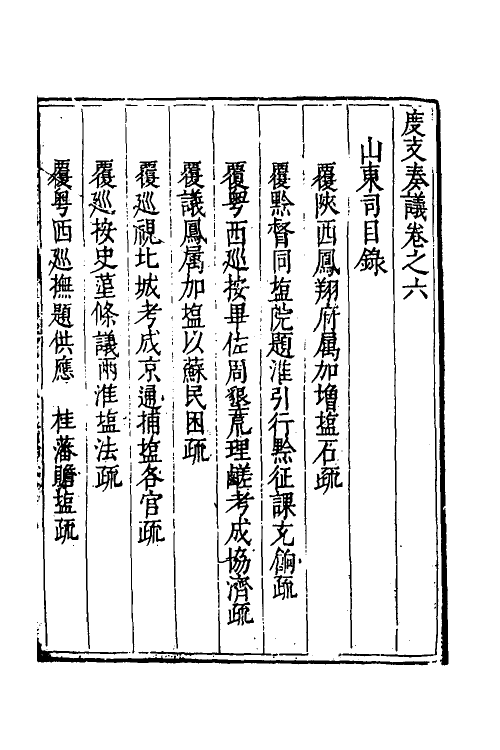 度支奏議卷之六
山東司目錄
覆陝西鳳翔府属加增塩石疏
覆黔督同塩院題淮引行黔征課充餉疏
覆粤西廵按畢佐周墾荒理鹺考成協濟疏
覆議鳳属加塩以蘇民困疏
覆廵視北城考成京通捕塩各官疏
覆廵按史𡎺條議兩淮塩法疏
覆粤西廵撫題供應　桂藩贍塩疏